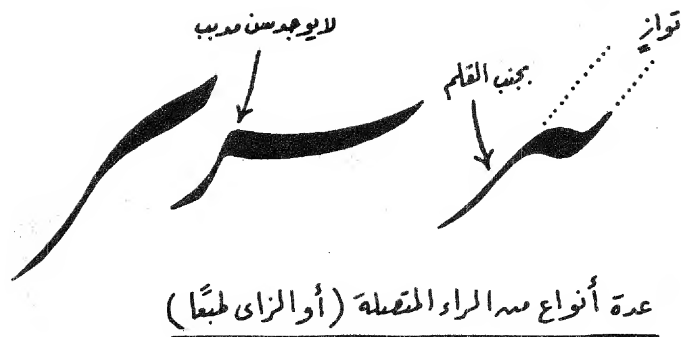 توازٍ
لا يوجد سن مدبب
بجنب القلم
عدة أنواع من الراء المتصلة (أو الزاى طبعًا)